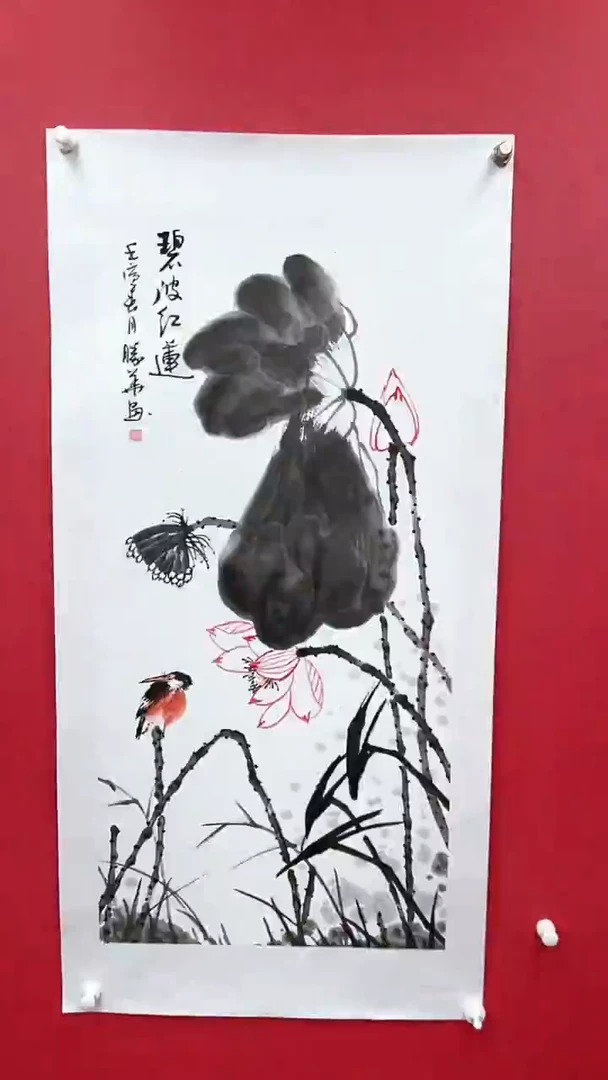 碧波红蓮
壬寅春月勝華畫